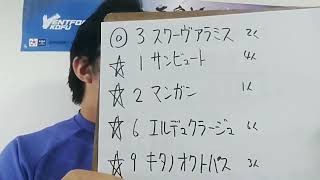 VENTFORET
KOFU
◎ 3 スワーヴアラミス 2人
☆ 1 サンビュート 4人
☆ 2 マンガン 1人
☆ 6 エルデュクラージュ 6人
☆ 9 キタノオクトパス 3人